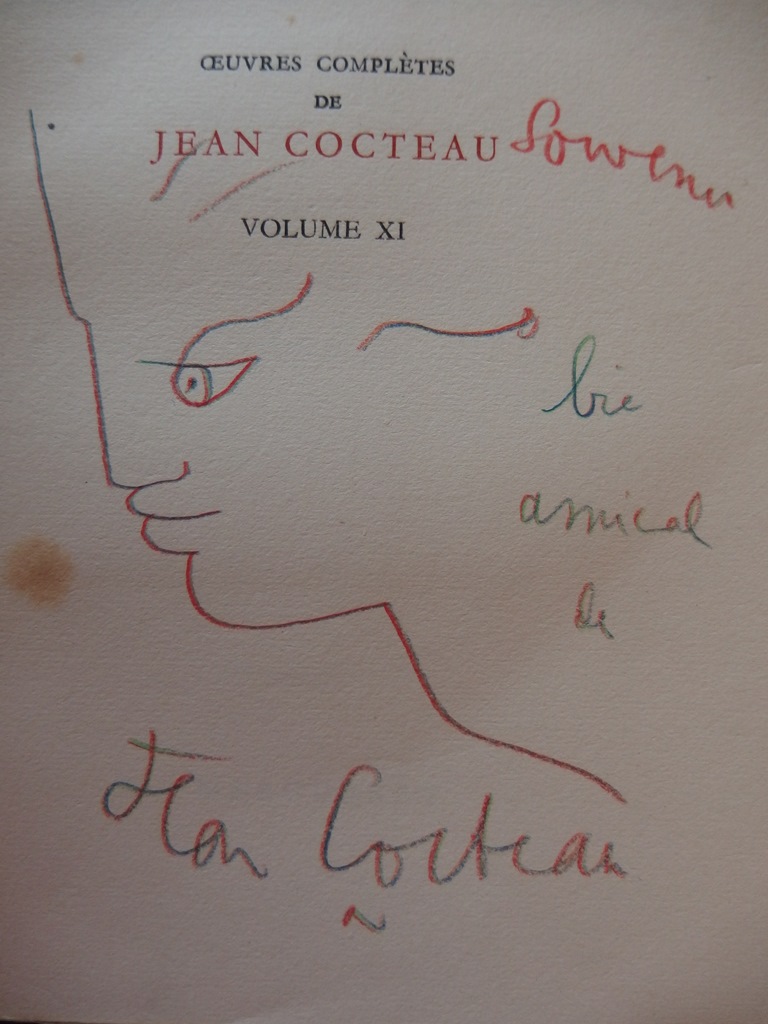 ŒUVRES COMPLÈTES
DE
JEAN COCTEAU
Souvenir
VOLUME XI
bie
amical
de
Jean Cocteau